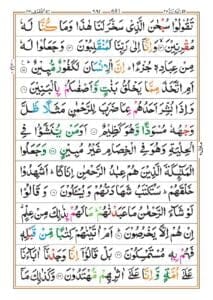 تَقُوۡلُوۡا سُبۡحٰنَ الَّذِىۡ سَخَّرَ لَنَا هٰذَا وَمَا كُنَّا لَهٗ
مُقۡرِنِيۡنَۙ‏ وَاِنَّاۤ اِلٰى رَبِّنَا لَمُنۡقَلِبُوۡنَ‏ وَجَعَلُوۡا لَهٗ
مِنۡ عِبَادِهٖ جُزۡءًا ؕ اِنَّ الۡاِنۡسَانَ لَـكَفُوۡرٌ مُّبِيۡنٌ ؕ اَمِ
اتَّخَذَ مِمَّا يَخۡلُقُ بَنٰتٍ وَّاَصۡفٰٮكُمۡ بِالۡبَنِيۡنَ‏
وَاِذَا بُشِّرَ اَحَدُهُمۡ بِمَا ضَرَبَ لِلرَّحۡمٰنِ مَثَلًا ظَلَّ
وَجۡهُهٗ مُسۡوَدًّا وَّهُوَ كَظِيۡمٌ‏ اَوَمَنۡ يُّنَشَّؤُا فِى
الۡحِلۡيَةِ وَهُوَ فِى الۡخِصَامِ غَيۡرُ مُبِيۡنٍ‏ وَجَعَلُوا
الۡمَلٰٓٮِٕكَةَ الَّذِيۡنَ هُمۡ عِبٰدُ الرَّحۡمٰنِ اِنَاثًا‌ ؕ اَشَهِدُوۡا
خَلۡقَهُمۡ‌ ؕ سَتُكۡتَبُ شَهَادَتُهُمۡ وَيُسۡئَـلُوۡنَ‏ وَقَالُوۡا
لَوۡ شَآءَ الرَّحۡمٰنُ مَا عَبَدۡنٰهُمۡ‌ؕ مَا لَهُمۡ بِذٰلِكَ مِنۡ عِلۡمٍ‌
اِنۡ هُمۡ اِلَّا يَخۡرُصُوۡنَؕ‏ اَمۡ اٰتَيۡنٰهُمۡ كِتٰبًا مِّنۡ قَبۡلِهٖ
فَهُمۡ بِهٖ مُسۡتَمۡسِكُوۡنَ‏ بَلۡ قَالُوۡۤا اِنَّا وَجَدۡنَاۤ اٰبَآءَنَا
عَلٰٓى اُمَّةٍ وَّاِنَّا عَلٰٓى اٰثٰرِهِمۡ مُّهۡتَدُوۡنَ‏ وَكَذٰلِكَ مَاۤ